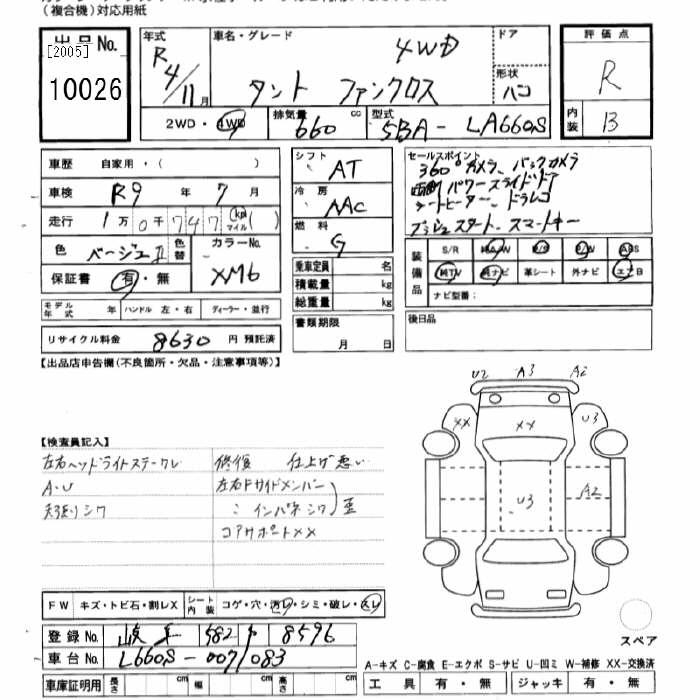 （複合機）対応用紙
出品No.
[2005]
10026
年式
R4/11月
車名・グレード
4WD
タント ファンクロス
ドア
形状
ハコ
評価点
R
内装
B
2WD・4WD
排気量
660 cc
型式
5BA-LA660S
車歴 自家用・( )
車検 R9 年 7 月
走行 1万0千747 (km マイル)
色 ベージュⅡ
色替
カラーNo.
XM6
保証書 有・無
モデル年式 年 ハンドル 左・右 ディーラー・並行
リサイクル料金 8630 円 預託済
シフト
AT
冷房
AAC
燃料
G
乗車定員 名
積載量 kg
総重量 kg
書類期限
月 日
セールスポイント
360°カメラ、バックカメラ
両側パワースライドドア
シートヒーター、ドラレコ
プッシュスタート、スマートキー
装備品
S/R AA/W P/S P/W ABS
純TV 純ナビ 革シート 外ナビ エアB
ナビ型番：
後日品
【出品店申告欄(不良箇所・欠品・注意事項等)】
【検査員記入】
左右ヘッドライトステークレ
A・U
天張りシワ
修復 仕上げ悪い
左右Fサイドメンバー
〃 インパネシワ
コアサポートXX
U2 A3 A2
XX XX U3
U3 A2
スペア
FW キズ・トビ石・割レX
シート内装 コゲ・穴・汚レ・シミ・破レ・スレ
登録No. 582 8596
車台No. L660S-0071083
車庫証明用 長さ cm 幅 cm 高さ cm
A-キズ C-腐食 E-エクボ S-サビ U-凹ミ W-補修 XX-交換済
工具 有・無 ジャッキ 有・無